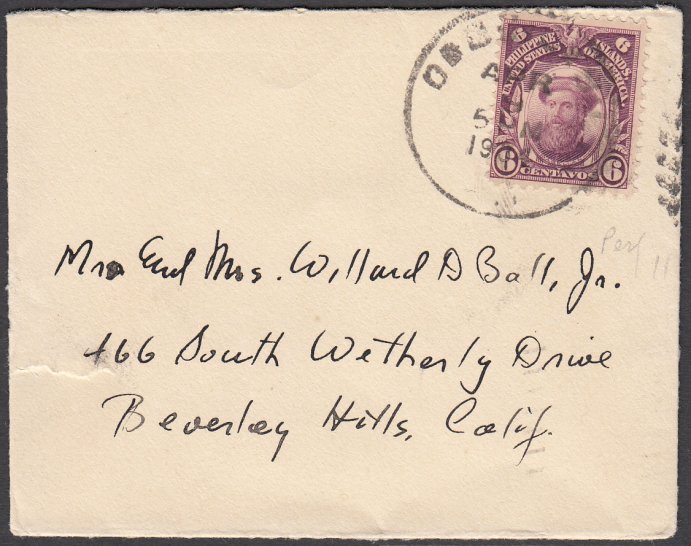 6 6
PHILIPPINE ISLANDS
UNITED STATES OF AMERICA
APR
5
M
19
6 CENTAVOS 6
Perf 11
Mr and Mrs. Willard D Ball, Jr.
466 South Wetherly Drive
Beverley Hills, Calif.